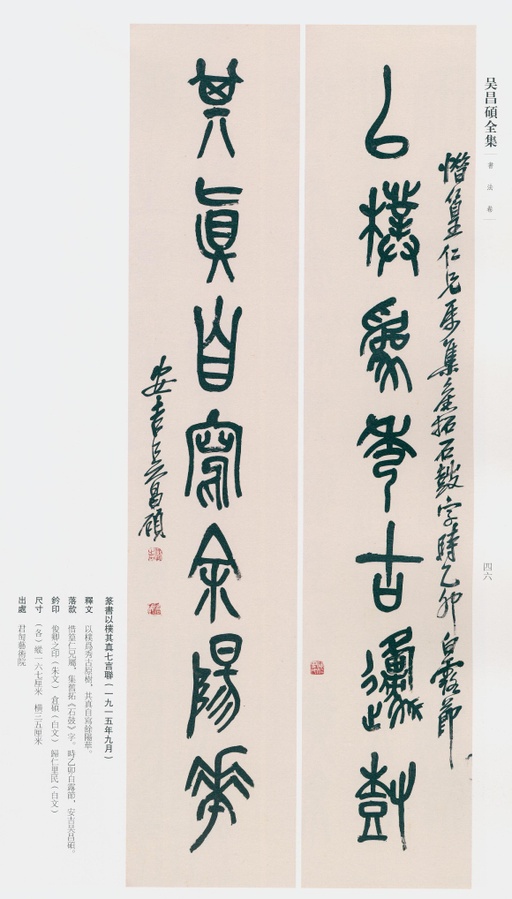 吴昌碩全集
書法卷
四六
篁仁兄屬集舊拓石鼓字時乙卯白露節
㠯樸爲秀古邍樹
其眞自寫余陽華
安吉吴昌碩
篆書以樸其真七言聯（一九一五年九月）
釋文 以樸爲秀古原樹，其真自寫餘陽華。
落款 篁仁兄屬，集舊拓《石鼓》字。時乙卯白露節，安吉吴昌碩。
鈐印 俊卿之印（朱文） 倉碩（白文） 歸仁里民（白文）
尺寸 （各）縱一六七厘米 橫三五厘米
出處 君匋藝術院